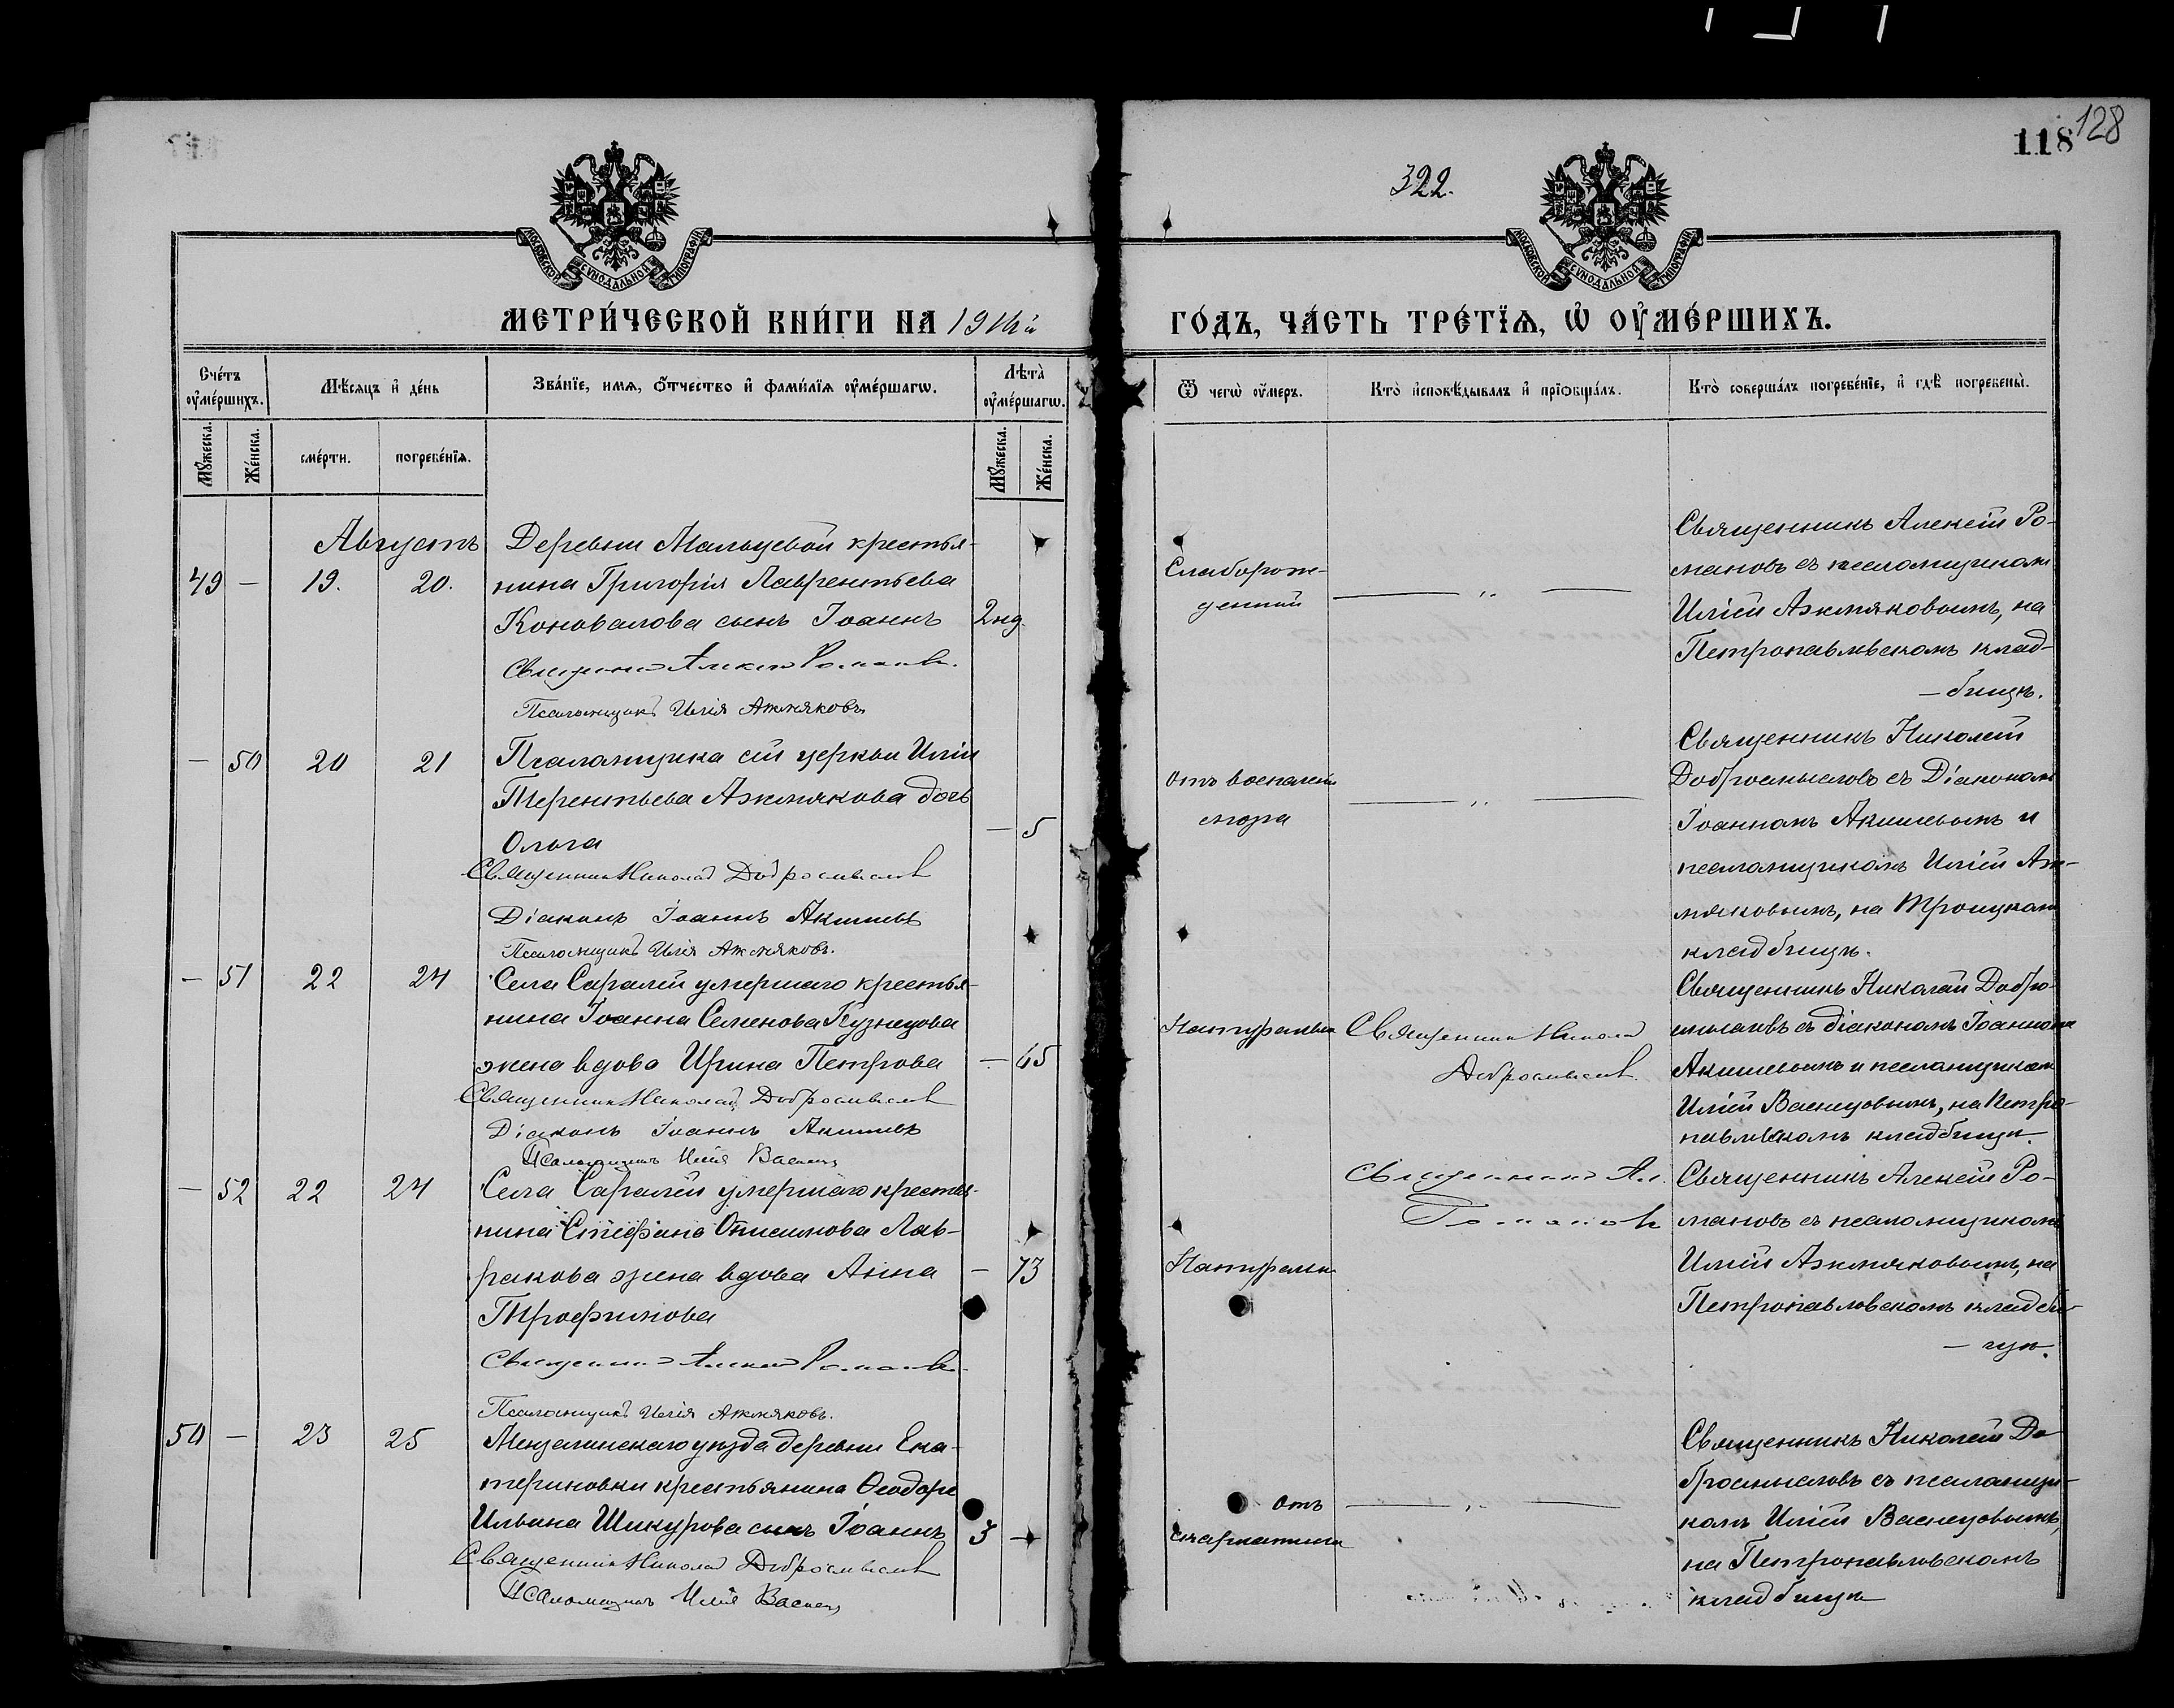 118 128
322.
МОСКОВСКОЙ СѴНОДАЛЬНОЙ ТИПОГРАФІИ
МОСКОВСКОЙ СѴНОДАЛЬНОЙ ТИПОГРАФІИ
МЕТРИ́ЧЕСКОЙ КНИ́ГИ НА 191
ГО́ДЪ, ЧА́СТЬ ТРЕ́ТІѦ, Ѡ ОУМЕ́РШИХЪ.
Сче́тъ оуме́ршихъ.
Мѣ́сяцъ и де́нь
Зва́нїе, имя, о́тчество и фами́лїя оуме́ршагѡ.
Лѣта̀ оуме́ршагѡ.
Ѿ чегѡ̀ оу́меръ.
Кто̀ исповѣ́дывалъ и прїобща́лъ.
Кто̀ соверша́лъ погребе́нїе, и гдѣ̀ погребены̀.
Мꙋ́жеска.
Же́нска.
сме́рти.
погребе́нїя.
Мꙋ́жеска.
Же́нска.
Августъ
49 — 19. 20.
Деревни Мальцевой крестья-
нина Григорія Лаврентьева
Коновалова сынъ Іоаннъ
2 нд.
Священникъ Алексій Романовъ.
Псаломщикъ Илія Ажмяковъ
Слаборож-
денный
— „ —
Священникъ Алексій Ро-
мановъ съ псаломщикомъ
Иліей Ажмяковымъ, на
Петропавловскомъ клад-
— бищѣ.
— 50 20 21
Псаломщика сей церкви Иліи
Терентьева Ажмякова дочь
Ольга
— 5
Священникъ Николай Добросмысловъ
Діаконъ Іоаннъ Акишевъ
Псаломщикъ Илія Ажмяковъ.
Отъ воспаленія
мозга
— „ —
Священникъ Николай
Добросмысловъ съ Діакономъ
Іоанномъ Акишевымъ и
псаломщикомъ Иліей Аж-
мяковымъ, на Троицкомъ
кладбищѣ.
— 51 22 24
Села Саралей умершаго крестья-
нина Іоанна Семенова Кузнецова
жена вдова Ирина Петрова
— 65
Священникъ Николай Добросмысловъ
Діаконъ Іоаннъ Акишевъ
Псаломщикъ Илія Васнец
Натуральн
Священникъ Николай
Добросмысловъ.
Священникъ Николай Добро-
смысловъ съ діакономъ Іоанномъ
Акишевымъ и псаломщикомъ
Иліей Васнецовымъ, на Петро-
павловскомъ кладбищѣ
— 52 22 24
Села Саралей умершаго крестья-
нина Стефана Онисимова Лав-
ракова жена вдова Анна
Трофимова
— 73
Священникъ Алексій Романовъ.
Псаломщикъ Илія Ажмяковъ.
Натуральн
Священникъ Ал.
Романовъ
Священникъ Алексій Ро-
мановъ съ псаломщикомъ
Иліей Ажмяковымъ, на
Петропавловскомъ кладби-
— щѣ.
50 — 23 25
Мензелинскаго уѣзда деревни Ека-
териновки крестьянина Ѳеодора
Ильина Шикурова сынъ Іоаннъ
3 —
Священникъ Николай Добросмысловъ
Псаломщикъ Илія Васнец
отъ
скарлатины
— „ —
Священникъ Николай До-
бросмысловъ съ псаломщи-
комъ Иліей Васнецовымъ,
на Петропавловскомъ
кладбищѣ